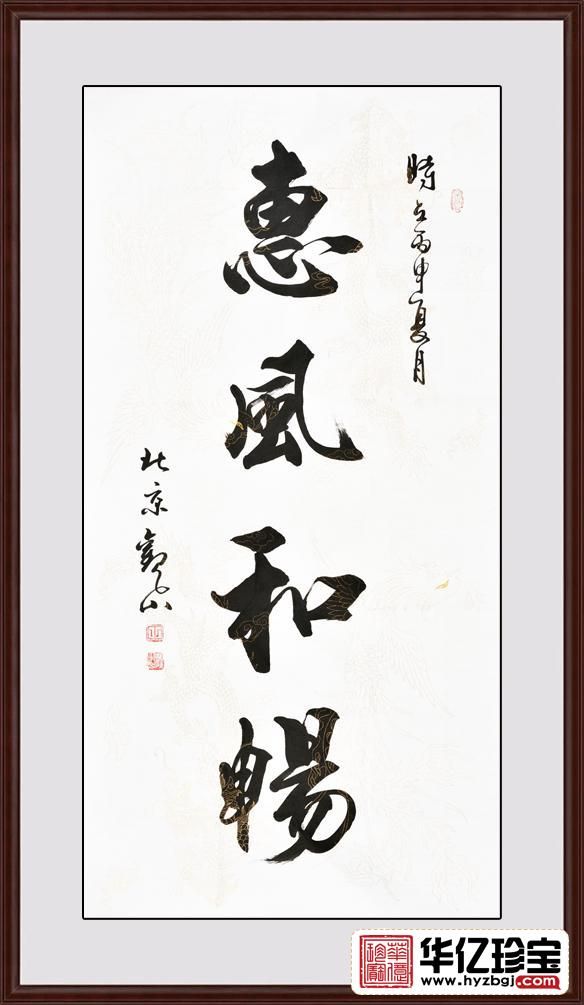 時在丙申夏月
惠風和暢
北京
华亿珍宝
www.hyzbgj.com